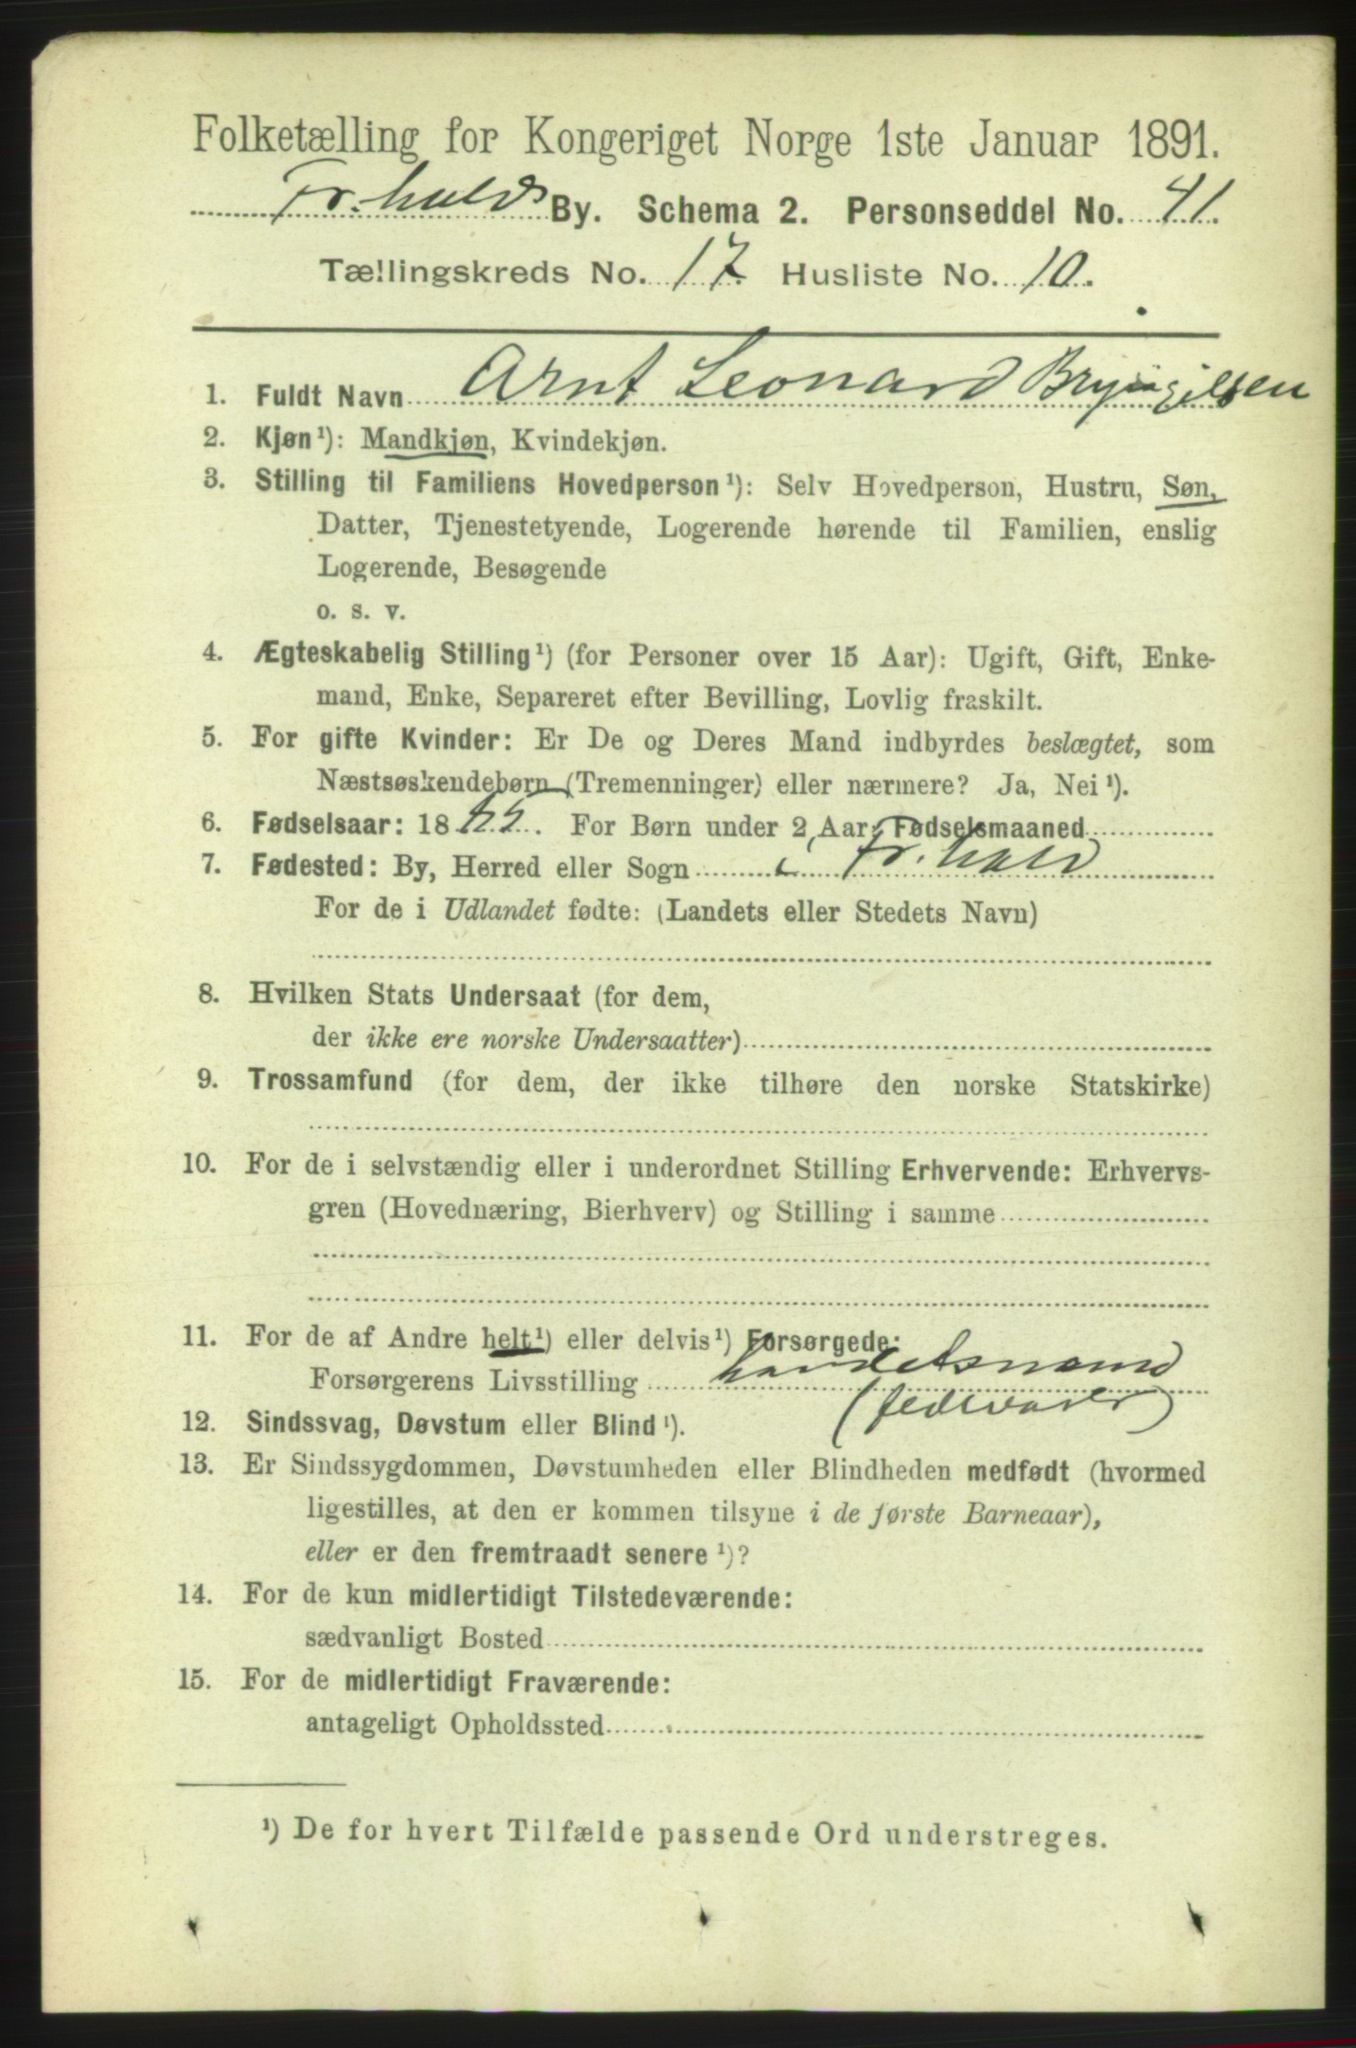 Folketælling for Kongeriget Norge 1ste Januar 1891.
Fr.halds By. Schema 2. Personseddel No. 41.
Tællingskreds No. 17. Husliste No. 10.
1. Fuldt Navn Arnt Leonard Bryngilsen
2. Kjøn¹): Mandkjøn, Kvindekjøn.
3. Stilling til Familiens Hovedperson¹): Selv Hovedperson, Hustru, Søn,
Datter, Tjenestetyende, Logerende hørende til Familien, enslig
Logerende, Besøgende
o. s. v.
4. Ægteskabelig Stilling¹) (for Personer over 15 Aar): Ugift, Gift, Enke-
mand, Enke, Separeret efter Bevilling, Lovlig fraskilt.
5. For gifte Kvinder: Er De og Deres Mand indbyrdes beslægtet, som
Næstsøskendebørn (Tremenninger) eller nærmere? Ja, Nei¹).
6. Fødselsaar: 18 . For Børn under 2 Aar: Fødselsmaaned
7. Fødested: By, Herred eller Sogn i Fr.hald
For de i Udlandet fødte: (Landets eller Stedets Navn)
8. Hvilken Stats Undersaat (for dem,
der ikke ere norske Undersaatter)
9. Trossamfund (for dem, der ikke tilhøre den norske Statskirke)
10. For de i selvstændig eller i underordnet Stilling Erhvervende: Erhvervs-
gren (Hovednæring, Bierhverv) og Stilling i samme
11. For de af Andre helt¹) eller delvis¹) Forsørgede:
Forsørgerens Livsstilling handelsmand
(fedevarer)
12. Sindssvag, Døvstum eller Blind¹).
13. Er Sindssygdommen, Døvstumheden eller Blindheden medfødt (hvormed
ligestilles, at den er kommen tilsyne i de første Barneaar),
eller er den fremtraadt senere¹)?
14. For de kun midlertidigt Tilstedeværende:
sædvanligt Bosted
15. For de midlertidigt Fraværende:
antageligt Opholdssted
¹) De for hvert Tilfælde passende Ord understreges.